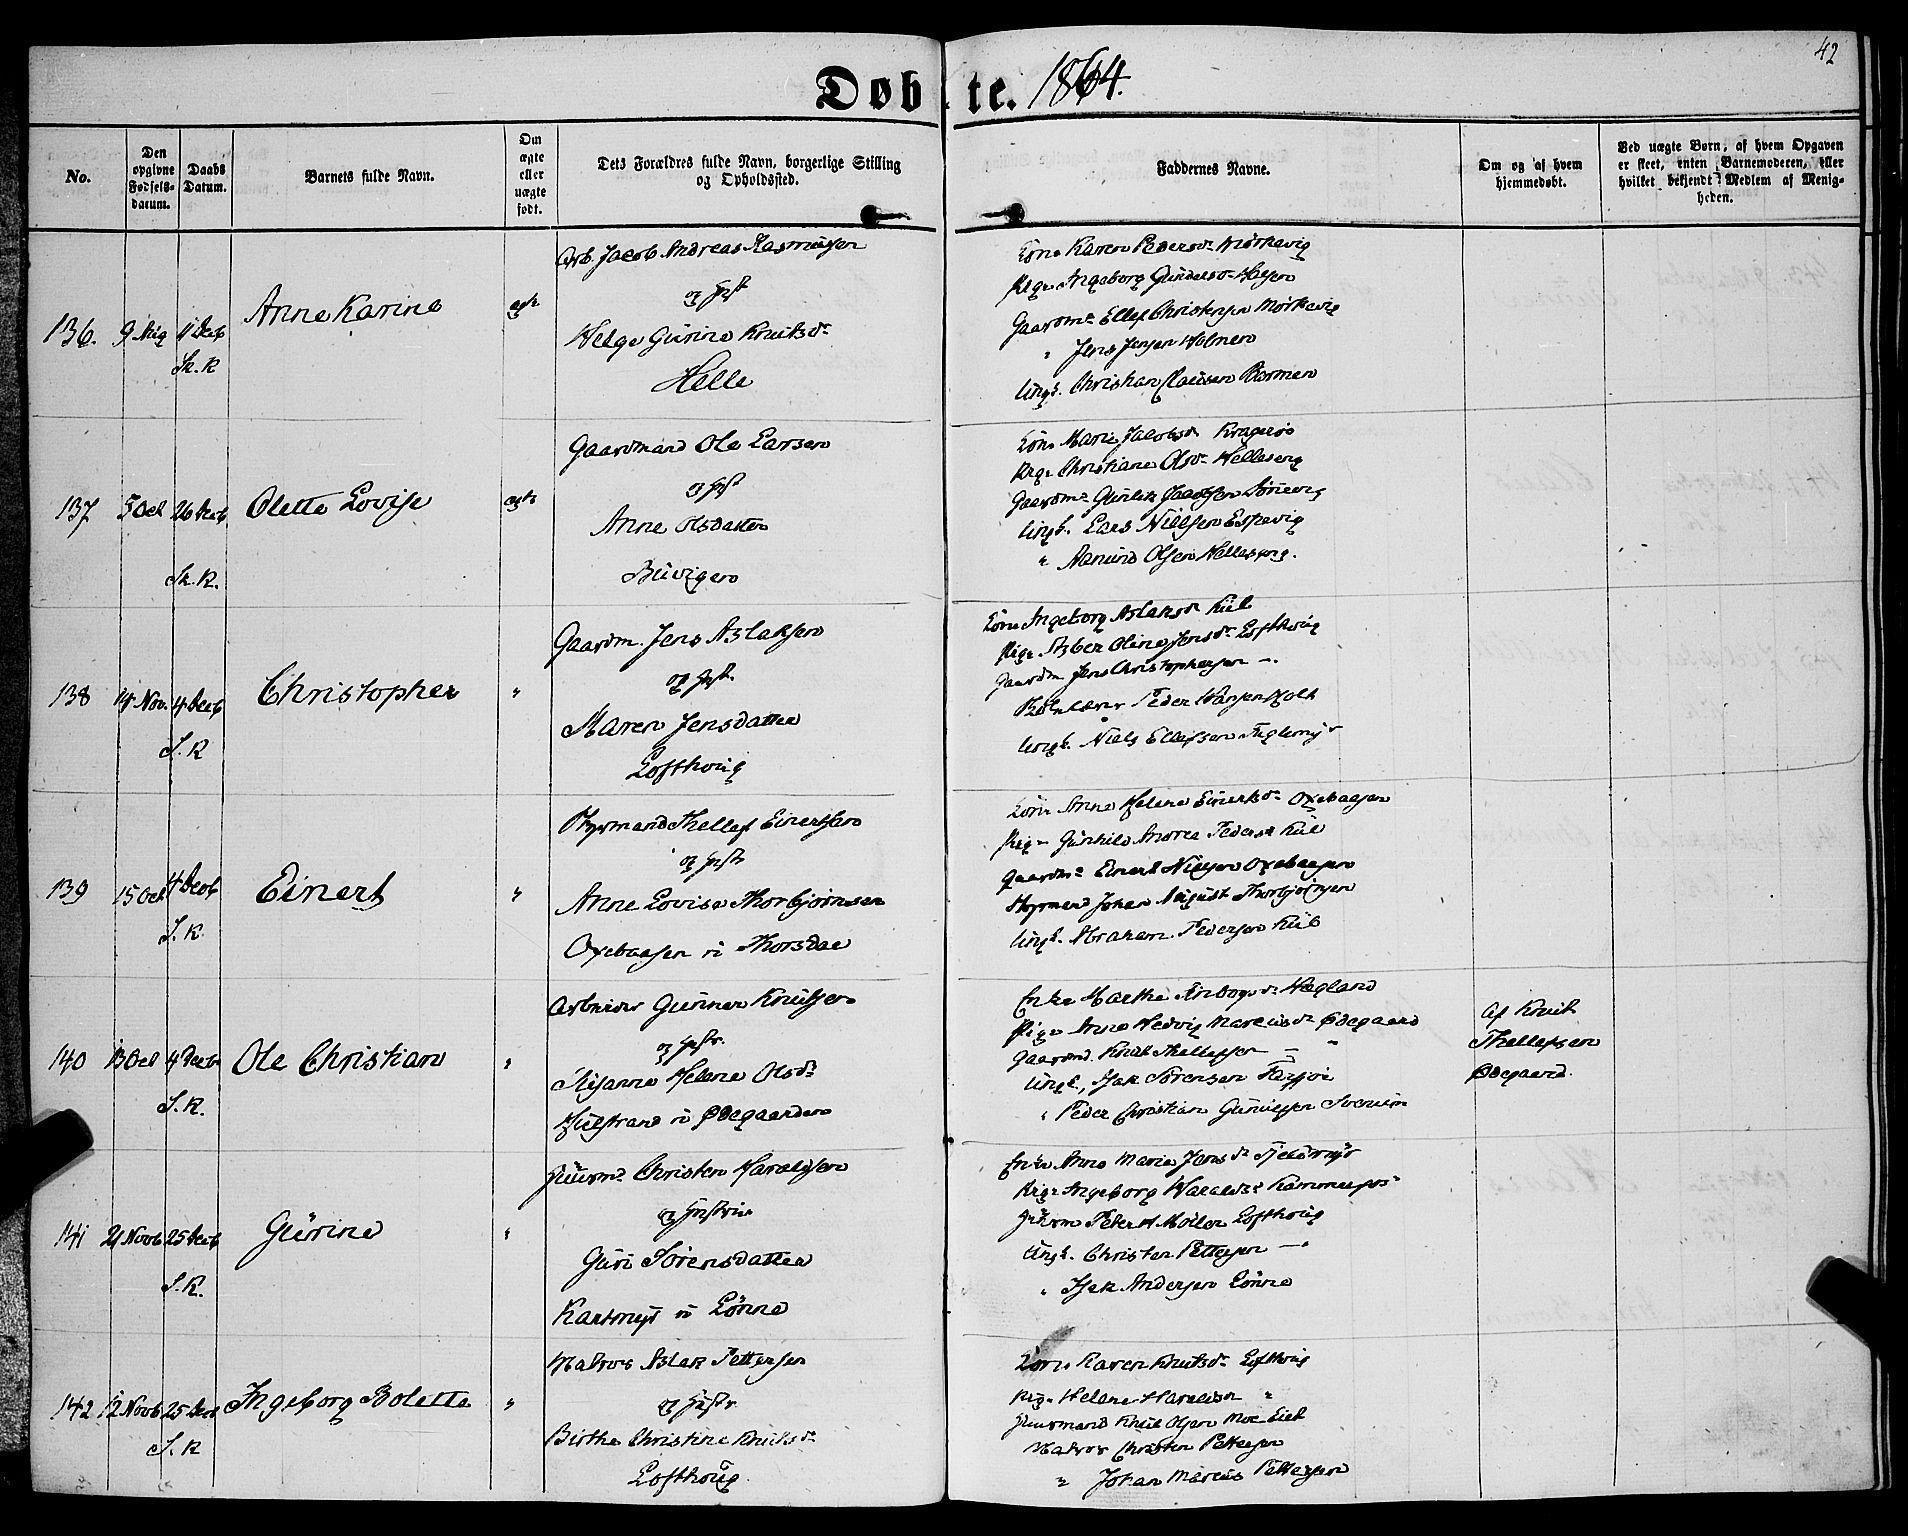 42
Døbte. 1864.
No.
Den opgivne Fødselsdatum.
Daabs Datum.
Barnets fulde Navn.
Om ægte eller uægte født.
Dets Forældres fulde Navn, borgerlige Stilling og Opholdssted.
Faddernes Navne.
Om og af hvem hjemmedøbt.
Ved uægte Børn, af hvem Opgaven er skeet, enten Barnemoderen, eller hvilket bekjendt Medlem af Menigheden.
136. 9 Aug 11 Decb
Sk. K
Anne Karine
ægte
Arb. Jacob Andreas Rasmussen
og Hust
Helge Gurine Knutsdr
Helle
Kone Karen Pedersdr Mørkevig
Pige Ingeborg Gundersdr
Gaardm Ellef Christensen Mørkevig
" Jens Jensen Holmen
Ungk. Christian Clausen Barmen
137 5 Oct 26 Decb
Sk. K.
Olette Lovise
ægte
Gaardmand Ole Larsen
og Hust
Anne Olsdatter
Buvigen
Kone Marie Jacobsdr Kragerø
Pige Christiane Olsdr Helleseng
Gaardm Jacobsen
Ungk. Lars Nielsen Espevig
" Aanund Olsen Helleseng.
138 14 Nov. 4 Decb
S. K
Christopher
"
Gaardm. Jens Aslaksen
og Hust.
Maren Jensdatter
Lofthoug
Kone Ingeborg Aslaksdr Kiil
Pige Asber Oline Jensdr Lofthoug
Gaardm Jens Christophersen — .
Peder Hansen Holt
Ungk. Niels Ellefsen Fuglemyr
139 15 Oct 4 Decb
S. K.
Einert
"
Styrmand Thellef Einertsen
og Hust
Anne Lovise Thorbjørnsen
Oxebaasen v Thorsdal
Kone Anne Helene Einertsdr Oxebaasen
Pige Gunhild Andrea Pedersdr Kiil
Gaardm Einert Nielsen Oxebaasen
Styrmand Johan August Thorbjørnsen
Ungk. Abraham Pedersen Kiil
140 13 Oct 4 Decb
S. K.
Ole Christian
"
Arbeider Gunner Knutsen
og Hustr.
Susanne Helene Olsdr
v Ødegaarden
Enke Marthe Hegland
Pige Anne Hedvig Marcusdr Ødegaard
Gaardmd. Knut Thellefsen — "
Ungk, Isak Sørensen
" Peder Christian Gunnersen
Af Knut
Thellefsen
Ødegaard.
141 21 Novb 25 Decb
S. K.
Gurine
"
Huusmd Christen Haraldsen
og Hustrue
Guri Sørensdatter
v Lønne
Enke Anne Marie Jensdr
Pige Ingeborg Haraldsdr
Huusm Peter Møller Lofthoug
Ungk. Christen Pettersen — "
" Isak Andersen Lønne
142 12 Novb 25 Decb
S. K
Ingeborg Bolette
"
Matros Aslak Pettersen
og Hustr
Birthe Christine Knutsdr
Lofthoug.
Kone Karen Knutsdr Lofthoug
Pige Helene Haraldsdr "
Huusmand Knut Olsen Moe Eiet
Matros Christen Pettersen
" Johan Marcus Pettersen